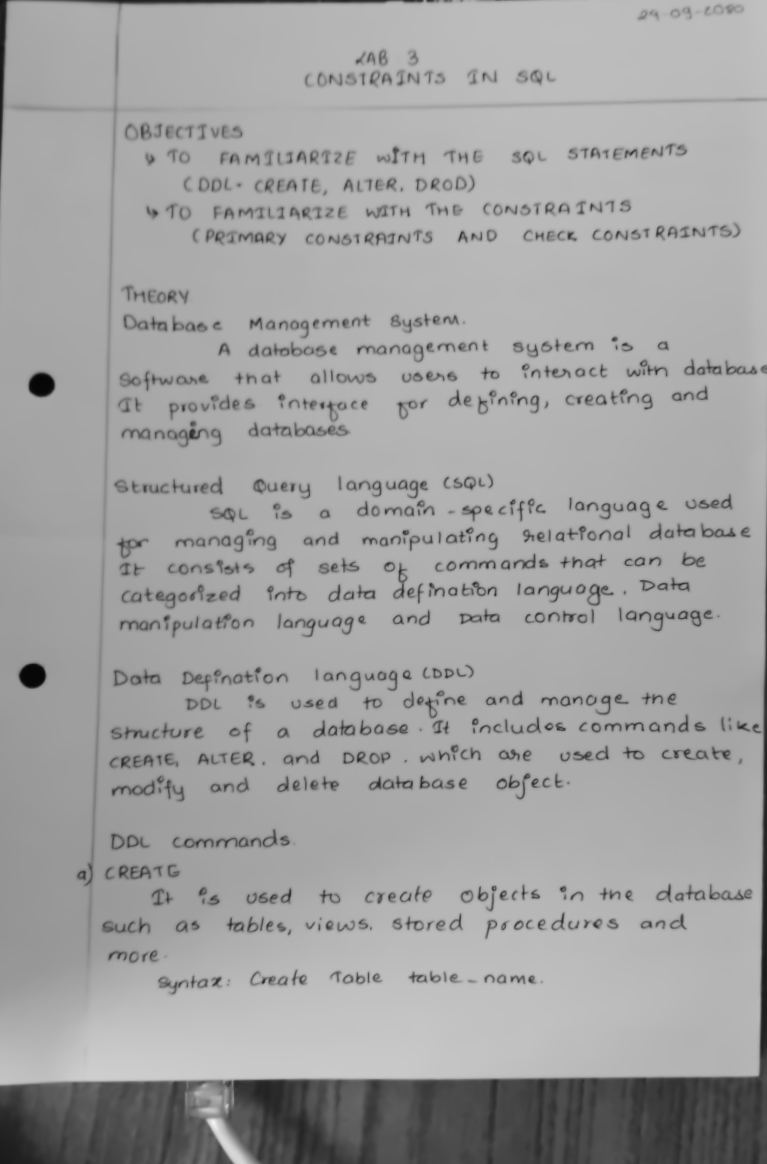 24-09-2080
LAB 3
CONSTRAINTS IN SQL
OBJECTIVES
↳ TO FAMILIARIZE WITH THE SQL STATEMENTS
(DDL- CREATE, ALTER, DROD)
↳ TO FAMILIARIZE WITH THE CONSTRAINTS
(PRIMARY CONSTRAINTS AND CHECK CONSTRAINTS)
THEORY
Database Management System.
A database management system is a
software that allows users to interact with database
It provides interface for defining, creating and
managing databases
Structured Query language (SQL)
SQL is a domain-specific language used
for managing and manipulating relational database
It consists of sets of commands that can be
categorized into data defination language. Data
manipulation language and Data control language.
Data Defination language (DDL)
DDL is used to define and manage the
structure of a database. It includes commands like
CREATE, ALTER. and DROP. which are used to create,
modify and delete database object.
DDL commands.
a) CREATE
It is used to create objects in the database
such as tables, views. stored procedures and
more.
Syntax: Create Table table_name.